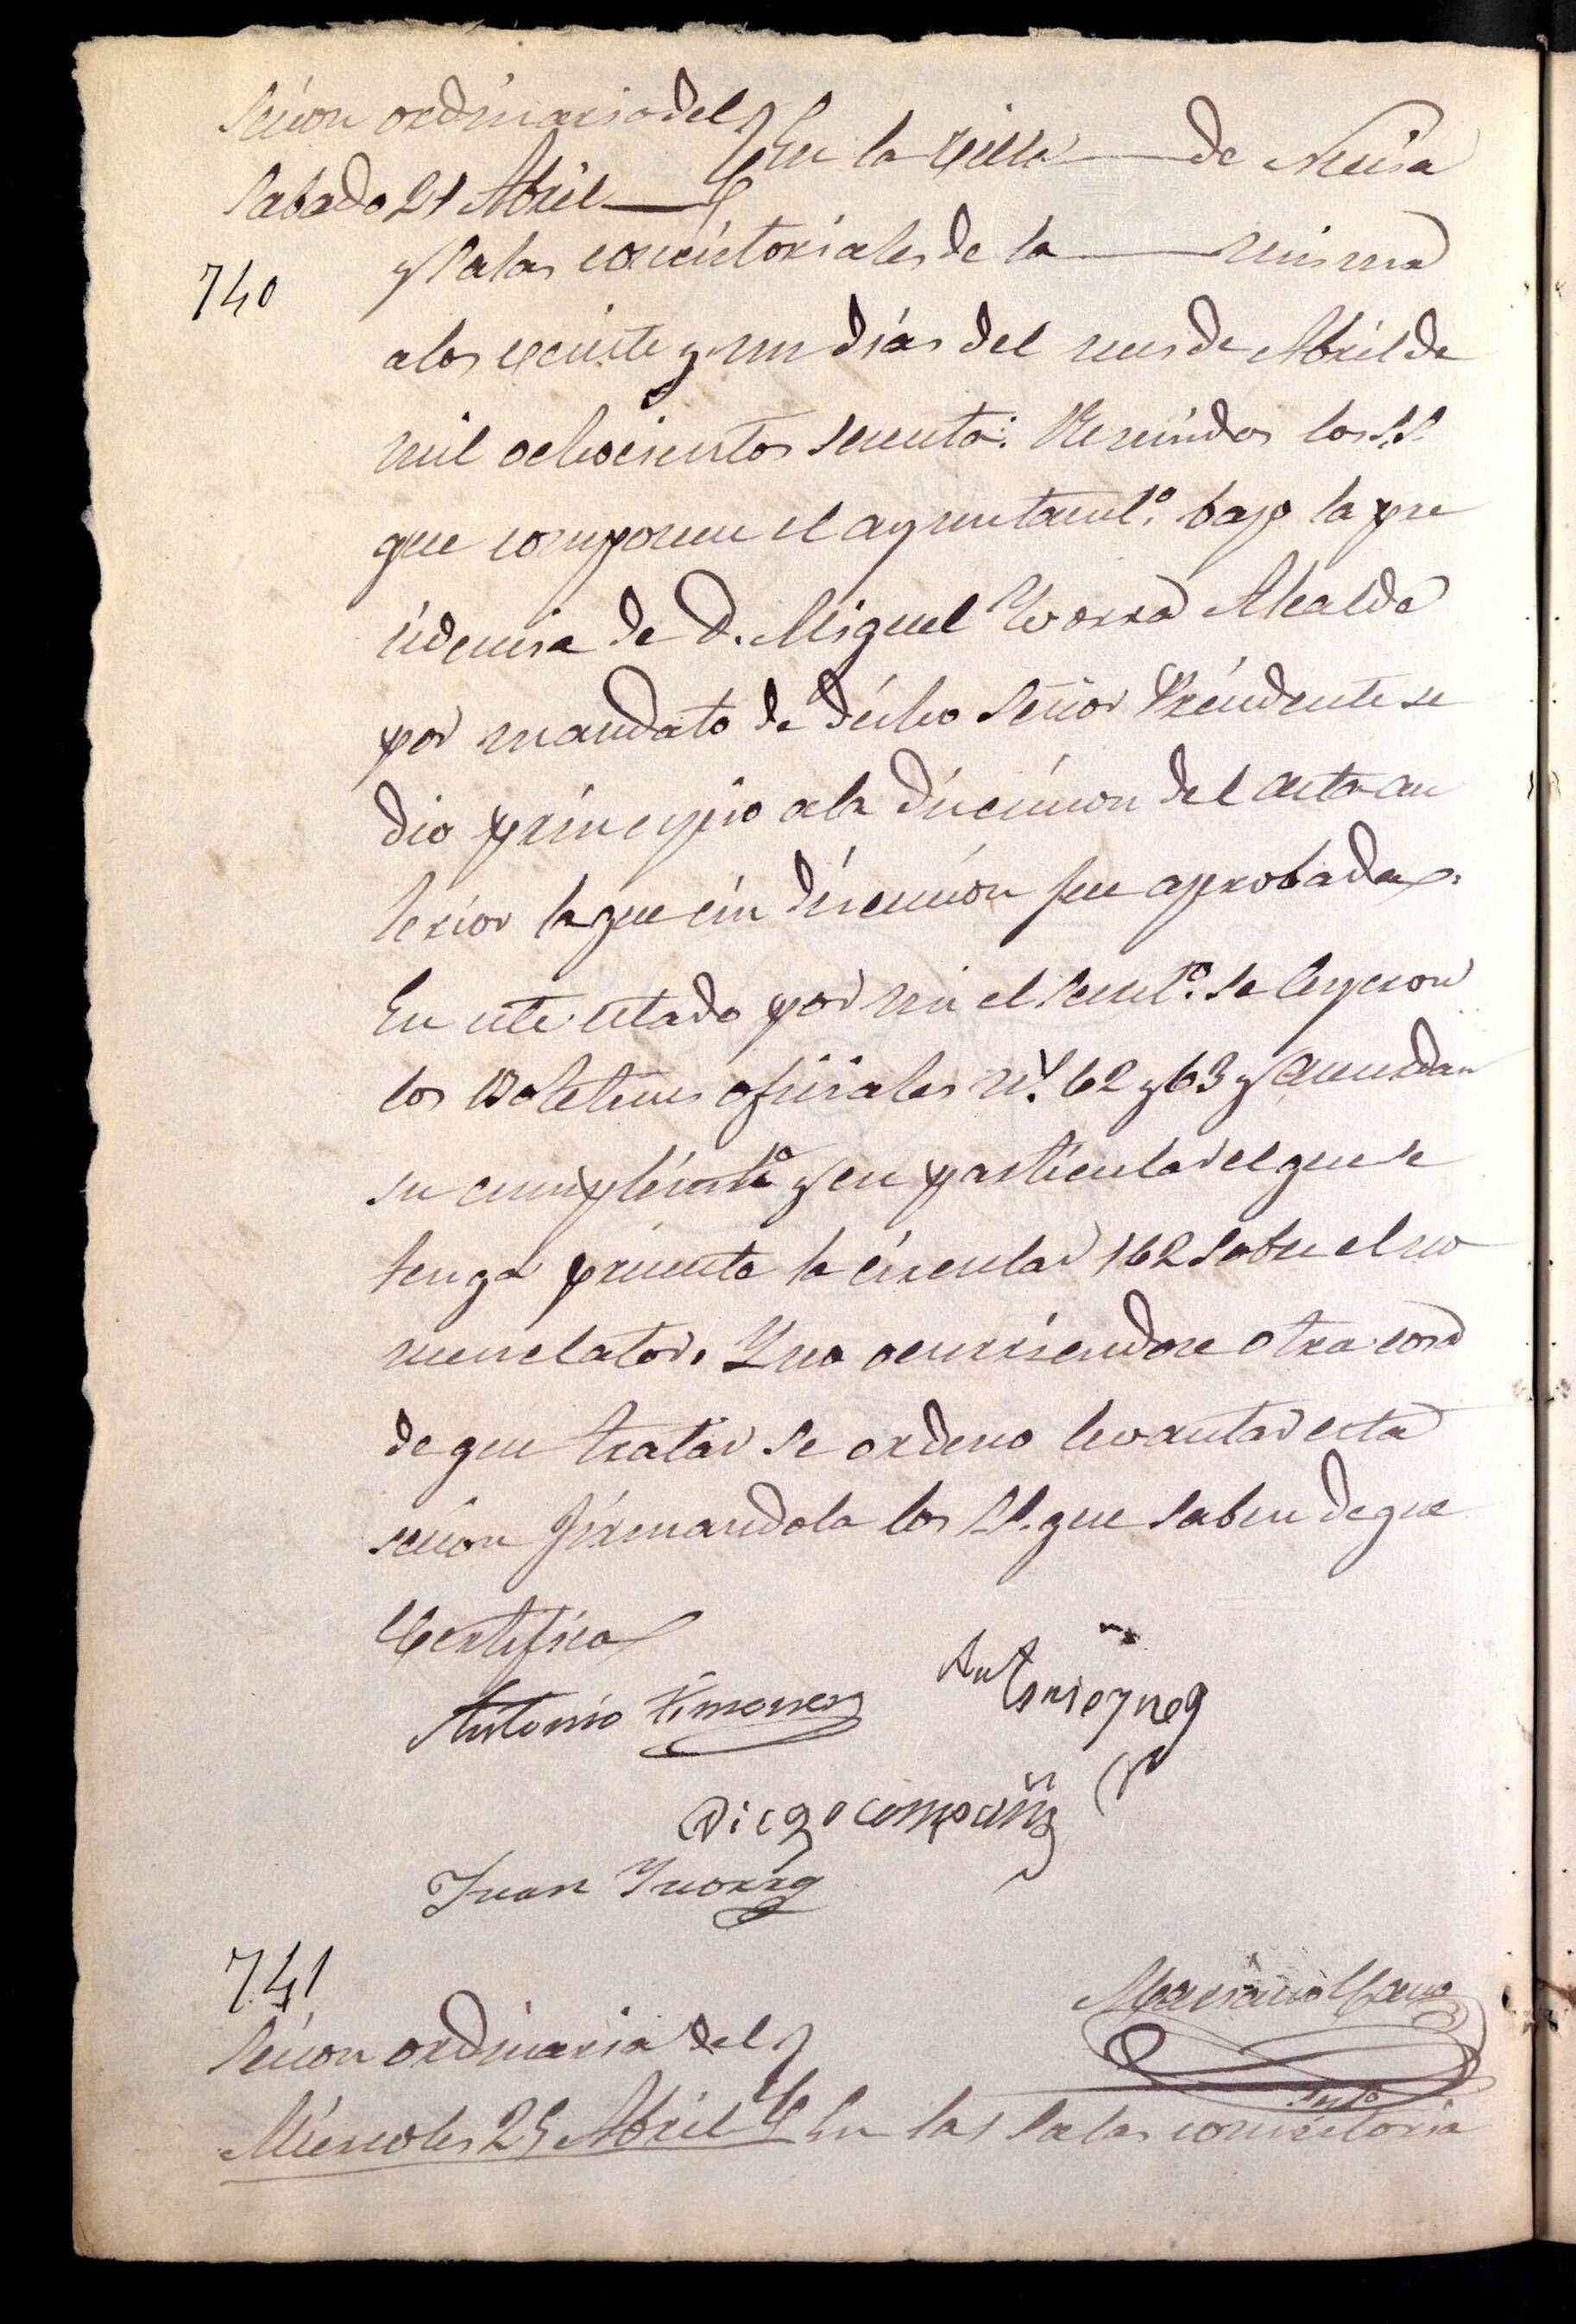 Secion ordinaria del
Sabado 21 Abril
740
En la villa de Nucia
y Salas concistoriales de la misma
a los veinte y un dias del mes de Abril de
mil ochocientos secenta: Reunidos los S.S.
que componen el ayuntaml.º bajo la pre
cidencia de D. Miguel Yvorra Alcalde
por mandato de dicho Señor Precidente se
dio principio a la discucion del acta an
terior la que cin discucion fue aprobada.
En este estado por mi el Secret.º se leyeron
los Boletines oficiales n.s 62 y 63 y acuerdan
su cumplimto y en particular el que se
tenga precente la circular 162 Sobre el no
menclator. Y no ocurriendose otra cosa
de que tratar se ordeno levantar esta
secion firmandola los S.S. que saben de que
Certifico
Antonio Ximenez
Diego
Juan Yvorra
Mariano Cano
741
Secion ordinaria del
Miercoles 25 Abril
En las Salas concistoria